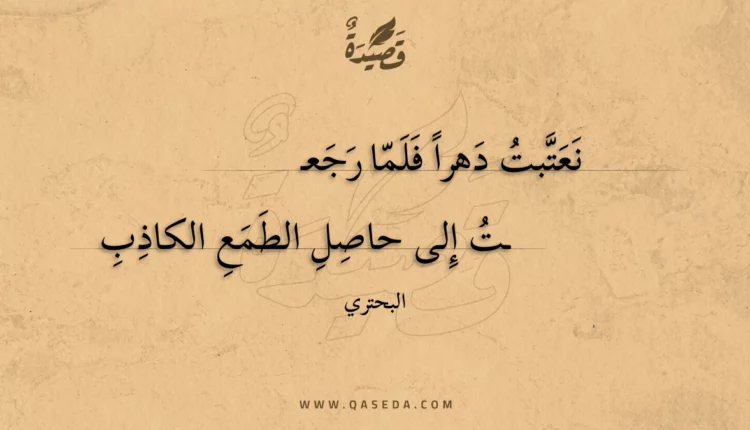 قَصِيْدَةٌ
نَعَتَّبتُ دَهراً فَلَمّا رَجَعـ
ـتُ إِلى حاصِلِ الطَمَعِ الكاذِبِ
البحتري
WWW.QASEDA.COM